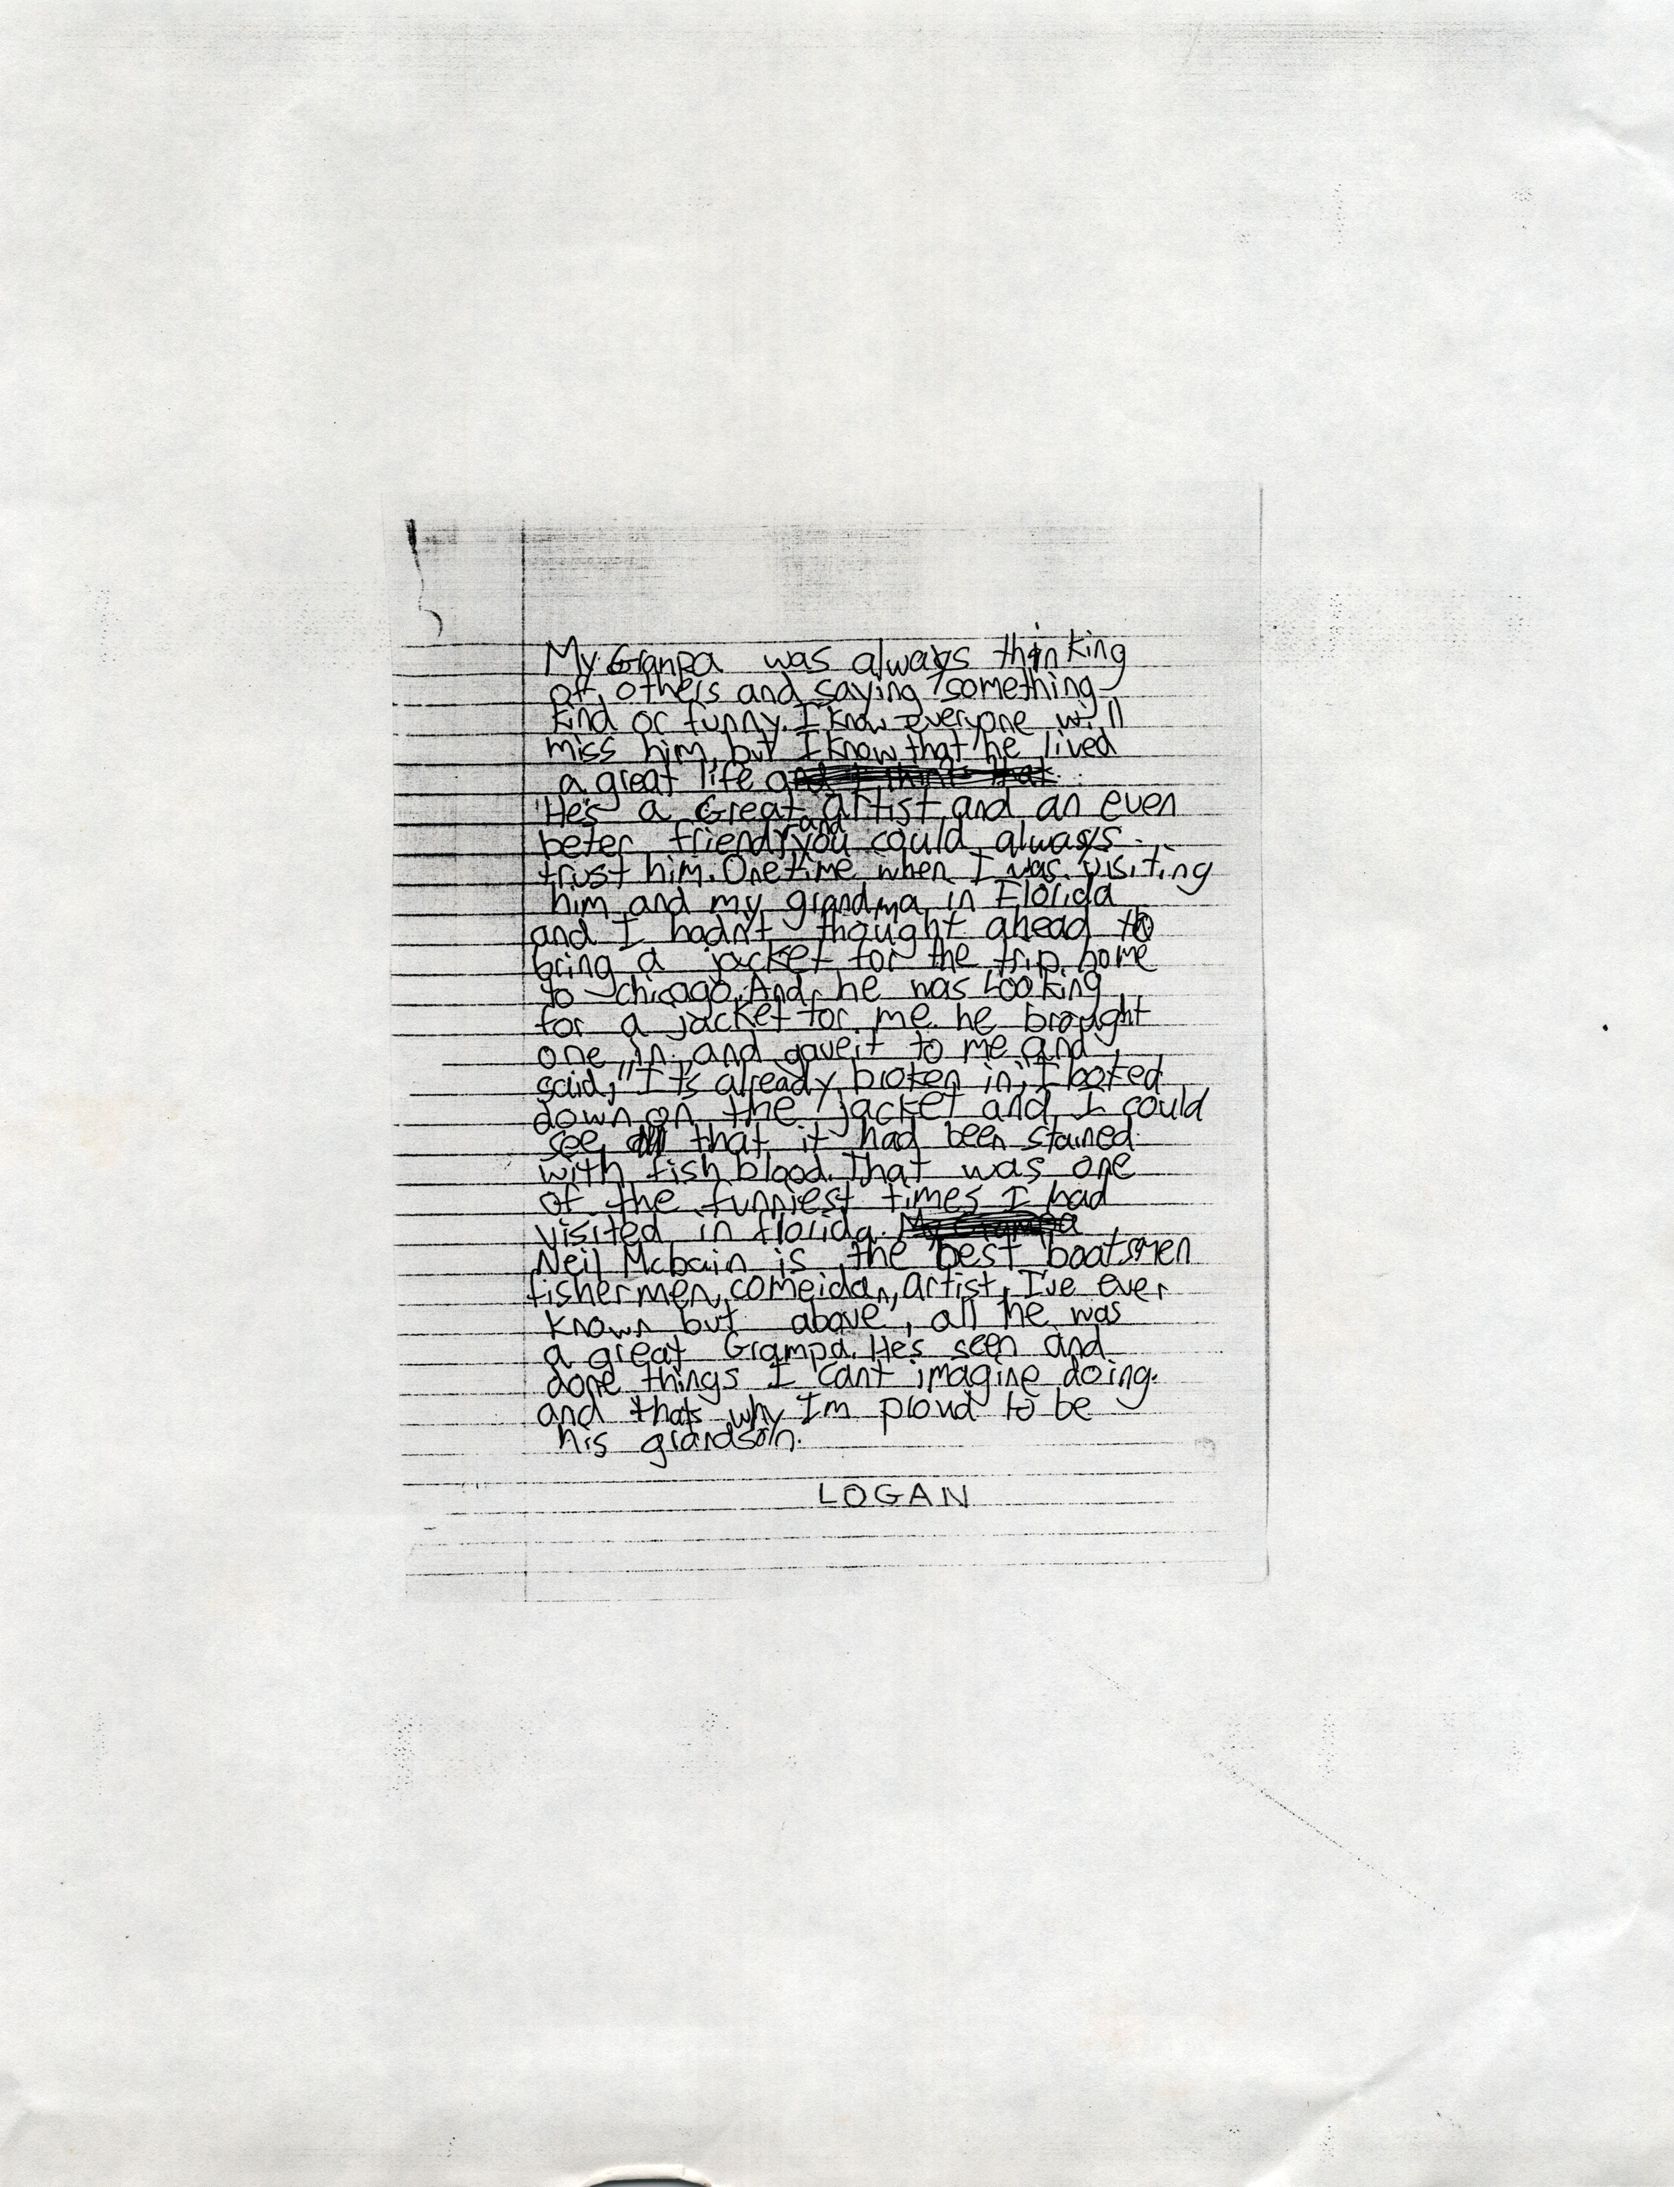 My Granpa was always thinking
of others and saying something
kind or funny. I know everyone will
miss him, but I know that he lived
a great life and I think that
He's a Great artist and an even
beter friend and you could always
trust him. One time when I was visiting
him and my grandma in Florida
and I hadn't thought ahead to
bring a jacket for the trip home
to chicago. And he was Looking
for a jacket for me he brought
one in and gave it to me and
said, "It's already broken in", I looked
down on the jacket and I could
see that it had been stained
with fish blood. That was one
of the funniest times I had
visited in florida. My Grampa
Neil Mcbain is the best boatsmen
fishermen, comeidan, artist, I've ever
known but above, all he was
a great Grampa. He's seen and
done things I can't imagine doing.
and thats why I'm proud to be
his grandson.
LOGAN